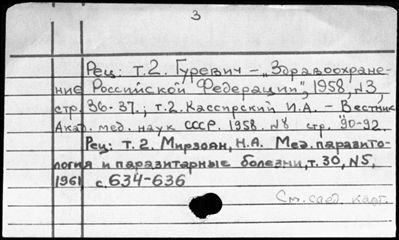 3
Рец: т.2. Гуревич – „Здравоохране-
ние Российской Федерации", 1958, №3,
стр. 36-37.; т.2. Кассирский И.А. – Вестник
Акад. мед. наук СССР. 1958. №8 стр. 90-92.
Рец: т. 2. Мирзоян, Н.А. Мед. паразито-
логия и паразитарные болезни, т. 30, №5,
1961, с. 634-636
См. след. карт.